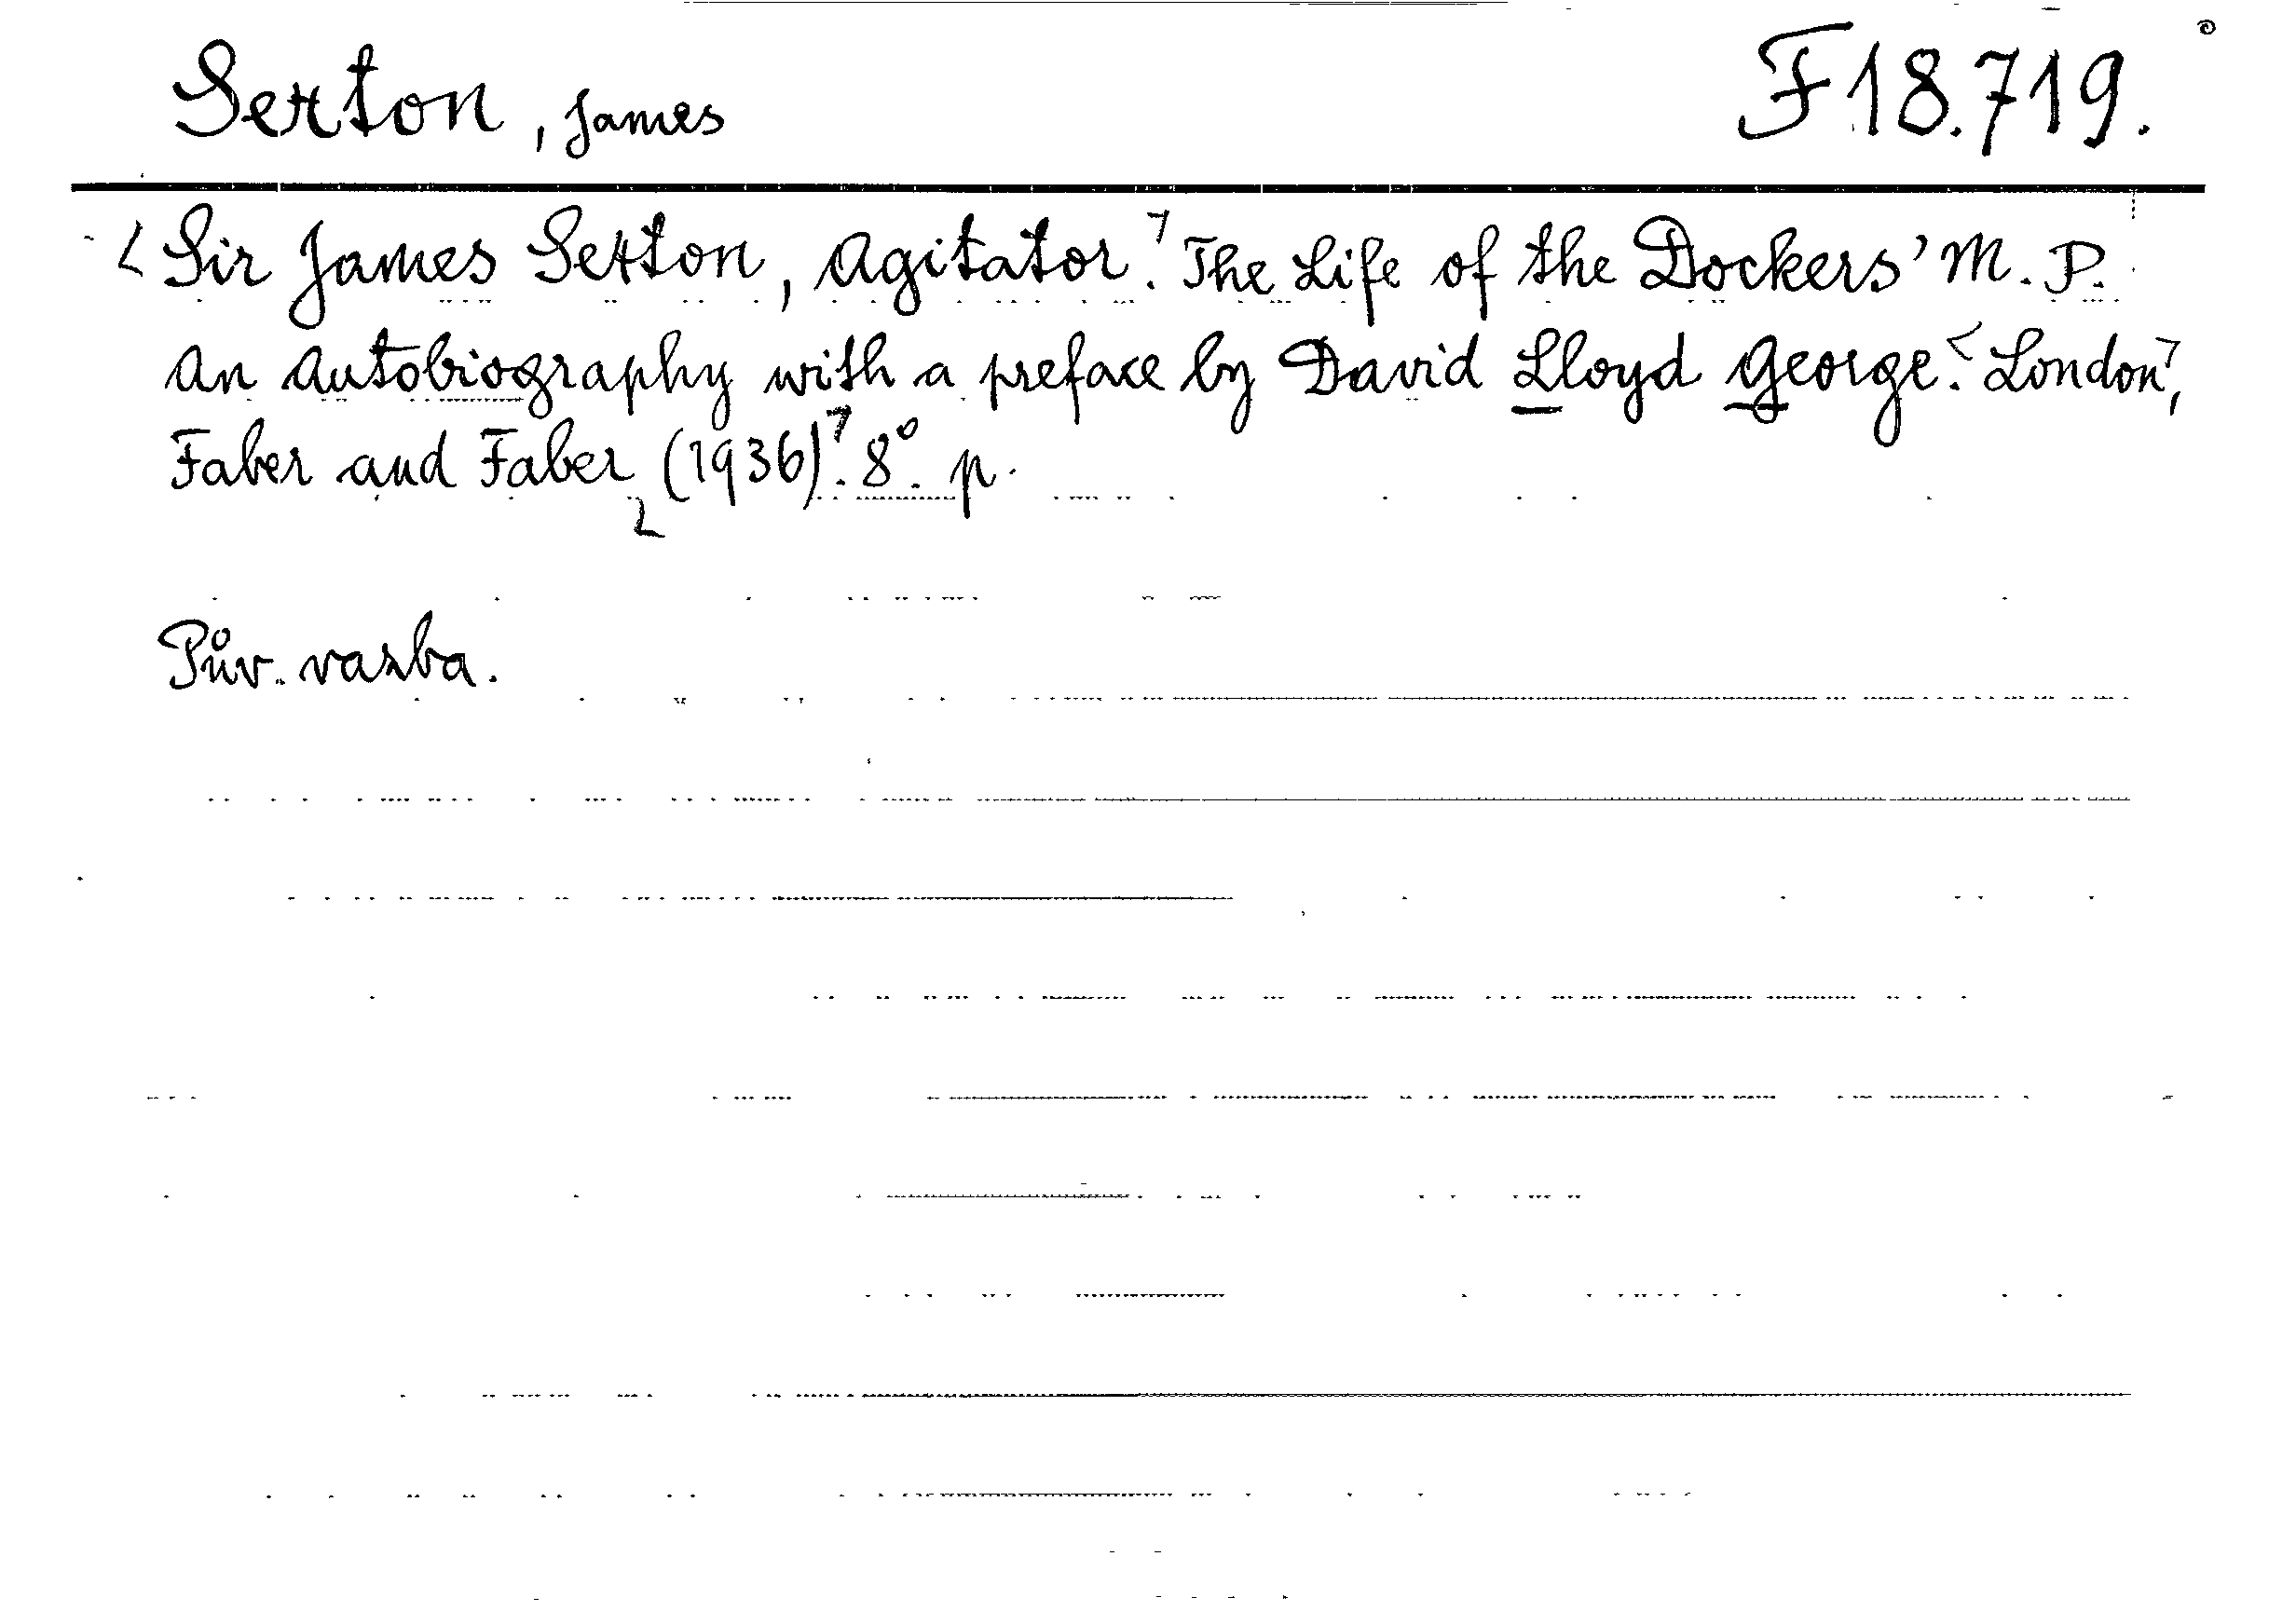 Sexton, James F 18.719.
<Sir James Sexton, Agitator.> The Life of the Dockers' M. P.
An Autobiography with a preface by David Lloyd George. <London>,
Faber and Faber <(1936)>. 8°. p.
Pův. vazba.